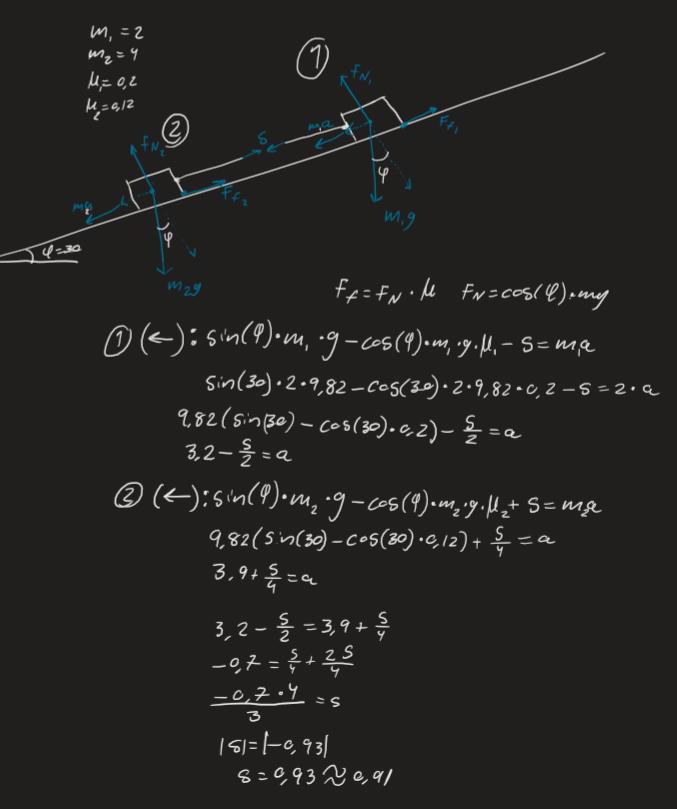 m₁ = 2
m₂ = 4
μ₁ = 0,2
μ₂ = 0,12
①
fN₁
m₁a
Ff₁
φ
m₁g
②
fN₂
S
Ff₂
φ
m₂g
φ=30
Ff = FN · μ FN = cos(φ)·mg
① (←): sin(φ)·m₁·g − cos(φ)·m₁·g·μ₁ − S = m₁a
sin(30)·2·9,82 − cos(30)·2·9,82·0,2 − S = 2·a
9,82(sin(30) − cos(30)·0,2) − S/2 = a
3,2 − S/2 = a
② (←): sin(φ)·m₂·g − cos(φ)·m₂·g·μ₂ + S = m₂a
9,82(sin(30) − cos(30)·0,12) + S/4 = a
3,9 + S/4 = a
3,2 − S/2 = 3,9 + S/4
−0,7 = S/4 + 2S/4
−0,7·4/3 = S
|S| = |−0,93|
S = 0,93 ≈ 0,91